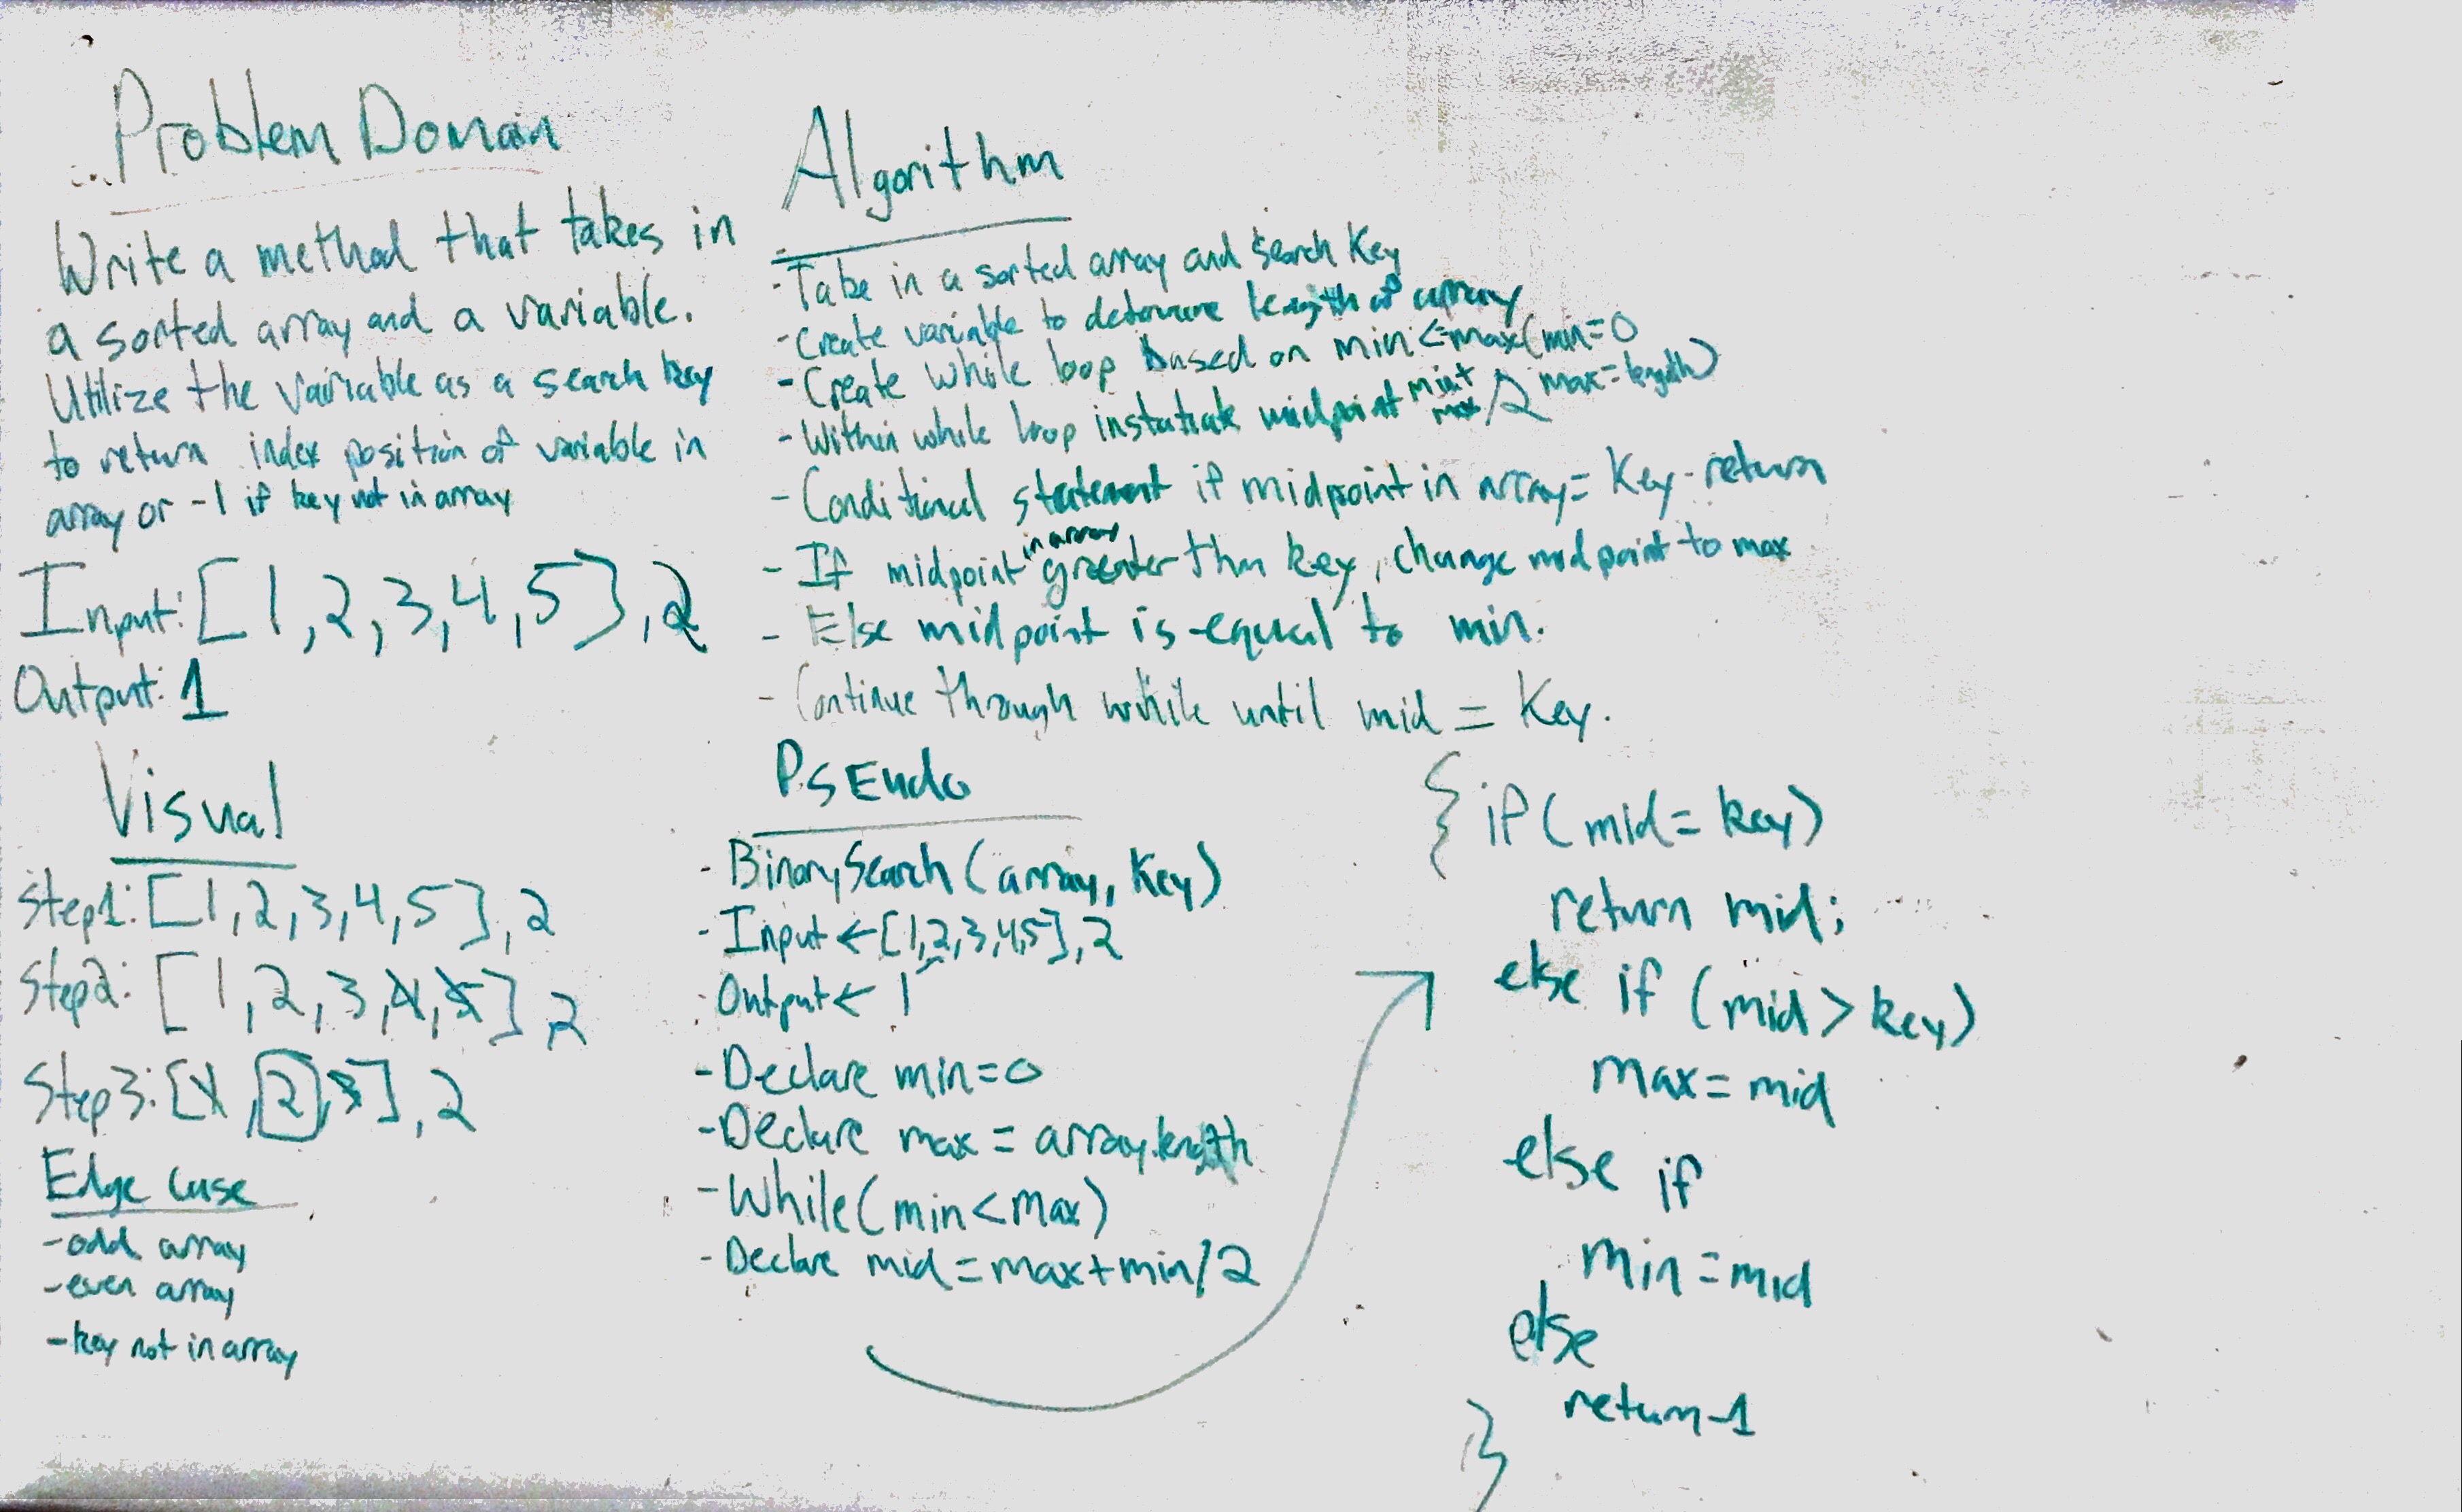 Problem Domain
Write a method that takes in
a sorted array and a variable.
Utilize the variable as a search key
to return index position of variable in
array or -1 if key not in array
Input: [1,2,3,4,5],2
Output: 1
Visual
Step1: [1,2,3,4,5],2
Step2: [1,2,3,4,5],2
Step3: [1,2,3],2
Edge Case
-odd array
-even array
-key not in array
Algorithm
-Take in a sorted array and Search Key
-Create variable to determine length of array
-Create while loop based on min<=max(min=0
max=length)
-Within while loop instatiate midpoint min+
max /2
-Conditional statement if midpoint in array= Key-return
in array
-If midpoint greater than key, change midpoint to max
-Else midpoint is equal to min.
-Continue through while until mid = Key.
PSEudo
-BinarySearch(array, Key)
-Input ← [1,2,3,4,5],2
-Output ← 1
-Declare min=0
-Declare max = array.length
-While(min<max)
-Declare mid=max+min/2
{ if(mid= key)
return mid;
else if (mid> key)
max=mid
else if
min=mid
else
return-1
}